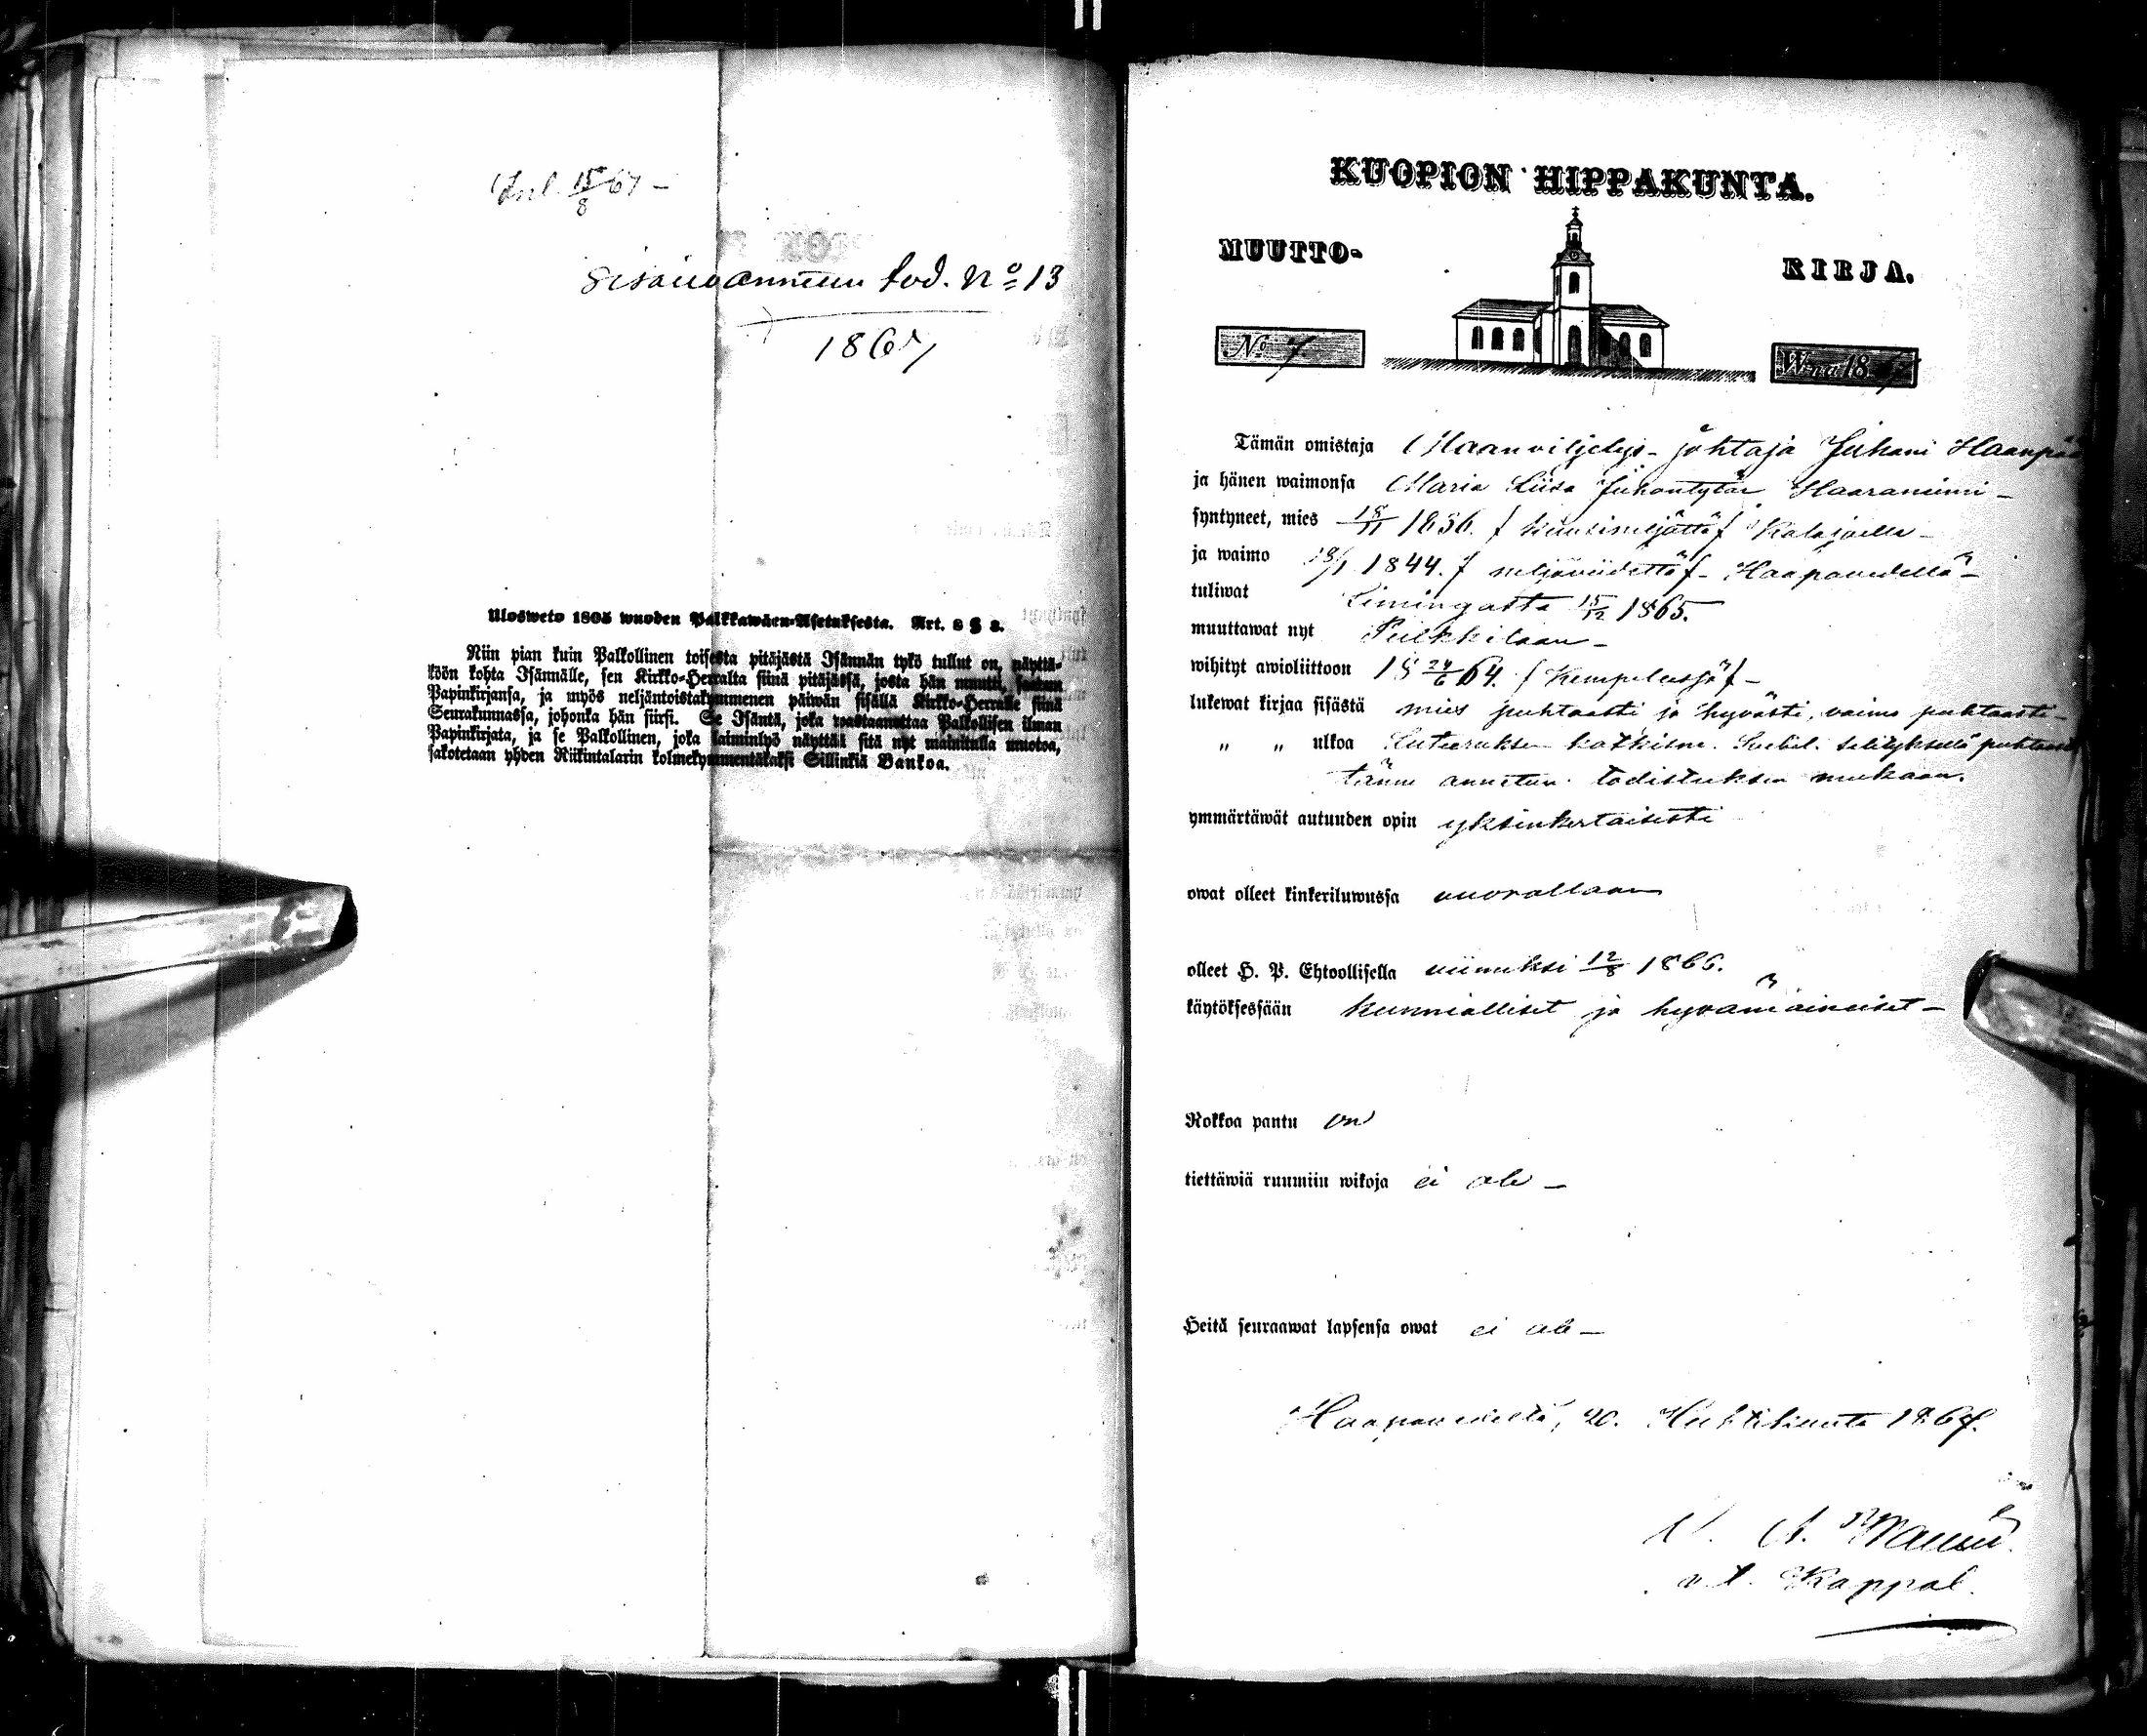 Inl. 15/8 67 –
Sisäänannettu tod. No 13
1867
Ulosweto 1805 wuoden Palkkawäen-Asetuksesta. Art. 8 § 3.
Niin pian kuin Palkollinen toisesta pitäjästä Isännän tykö tullut on, näyttä-
köön kohta Isännälle, sen Kirkko-Herralta siinä pitäjässä, josta hän muutti, saatun
Papinkirjansa, ja myös neljäntoistakymmenen päiwän sisällä Kirkko-Herralle siinä
Seurakunnassa, johonka hän siirsi. Se Isäntä, joka wastaanottaa Palkollisen ilman
Papinkirjata, ja se Palkollinen, joka laiminlyö näyttää sitä nyt mainitulla muotoa,
sakotetaan yhden Riikintalarin kolmekymmentäkaksi Sillinkiä Bankoa.
KUOPION HIPPAKUNTA.
MUUTTO-
KIRJA.
No 7
W:na 18 67
Tämän omistaja Maanviljelys-johtaja Juhani Haanpää
ja hänen waimonsa Maria Liisa Juhontytär Haaraniemi –
syntyneet, mies 18/11 1836. / kuusineljättä / Kalajoella –
ja waimo 1844. / neljäviidettä / – Haapavedellä –
tuliwat Limingasta 15/12 1865.
muuttawat nyt Pulkkilaan –
wihityt awioliittoon 18 24/6 64. / Kempeleessä / –
lukewat kirjaa sisästä mies puhtaasti ja hyvästi, vaimo puhtaasti –
" " ulkoa Luteeruksen katkismon selityksellä puhtaasti
tänne annetun todistuksen mukaan.
ymmärtäwät autuuden opin yksinkertaisesti
owat olleet kinkeriluwussa vuorollaan
olleet H. P. Ehtoollisella viimeksi 12/8 1866.
käytöksessään kunnialliset ja hyvämaineiset –
Rokkoa pantu on
tiettäwiä ruumiin wikoja ei ole –
Heitä seuraawat lapsensa owat ei ole –
Haapavedeltä, 20. Huhtikuuta 1867.
v. t. Kappal.